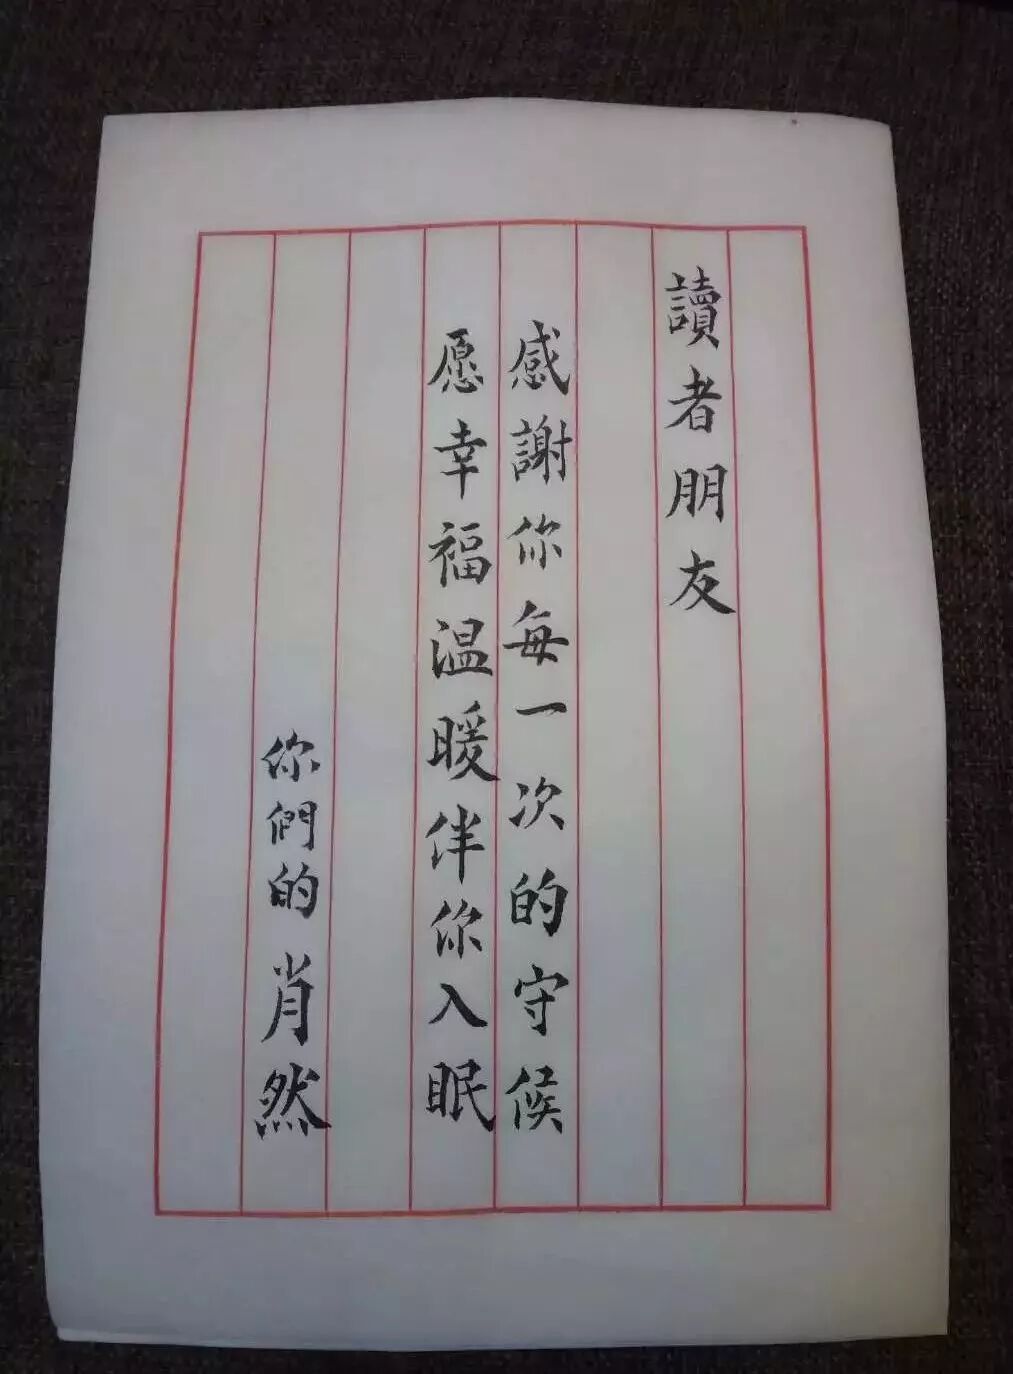 讀者朋友
感謝你每一次的守候
愿幸福温暖伴你入眠
你們的肖然